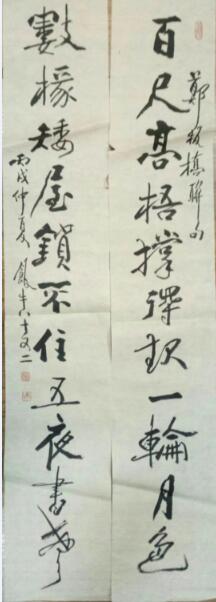 百尺高梧撑得起一輪月色
鄭板橋聯句
數椽矮屋鎖不住五夜書聲
丙戌仲夏